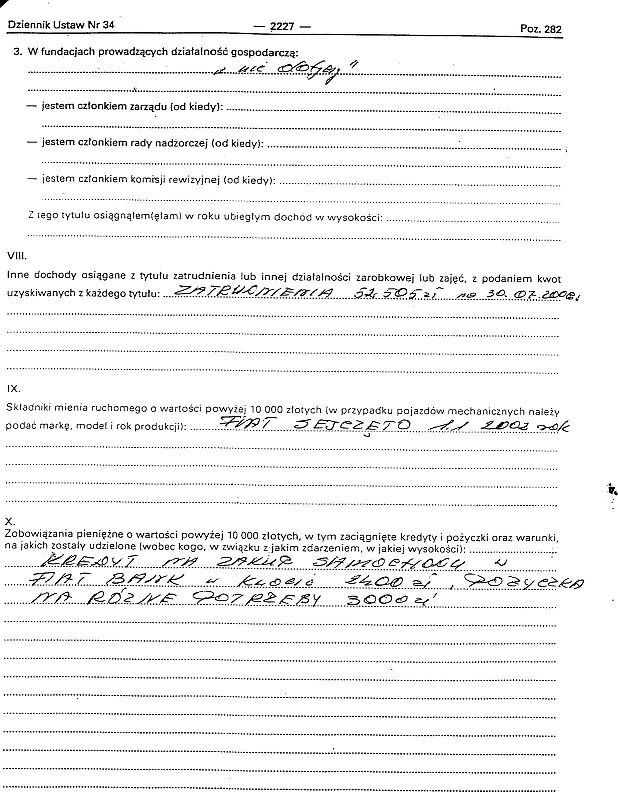 Dziennik Ustaw Nr 34 — 2227 — Poz. 282
3. W fundacjach prowadzących działalność gospodarczą:
„ nie dotyczy"
— jestem członkiem zarządu (od kiedy):
— jestem członkiem rady nadzorczej (od kiedy):
— jestem członkiem komisji rewizyjnej (od kiedy):
Z tego tytułu osiągnąłem(ęłam) w roku ubiegłym dochód w wysokości:
VIII.
Inne dochody osiągane z tytułu zatrudnienia lub innej działalności zarobkowej lub zajęć, z podaniem kwot
uzyskiwanych z każdego tytułu: ZATRUDNIENIA 52.505 zł na 30.07.2006
IX.
Składniki mienia ruchomego o wartości powyżej 10 000 złotych (w przypadku pojazdów mechanicznych należy
podać markę, model i rok produkcji): FIAT SEJCZĘTO 1.1 2002 rok
X.
Zobowiązania pieniężne o wartości powyżej 10 000 złotych, w tym zaciągnięte kredyty i pożyczki oraz warunki,
na jakich zostały udzielone (wobec kogo, w związku z jakim zdarzeniem, w jakiej wysokości):
KREDYT NA ZAKUP SAMOCHODU w
FIAT BANK w kwocie 2400 zł, POŻYCZKA
NA RÓŻNE POTRZEBY 3000 zł